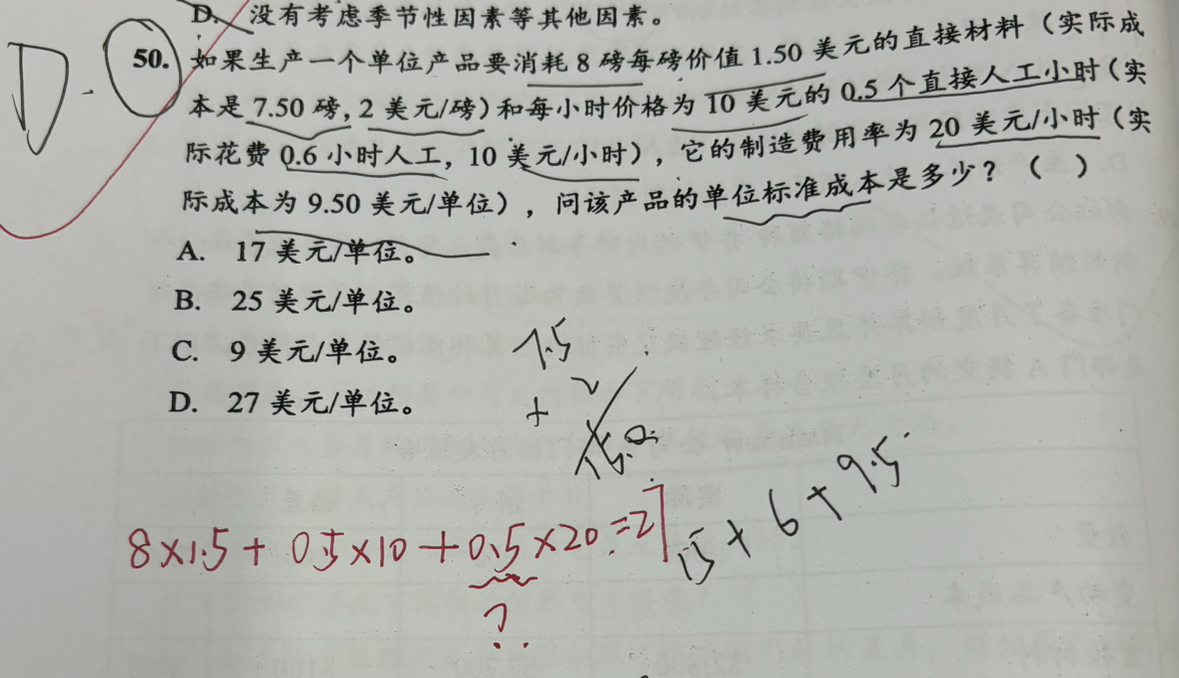 D. 没有考虑季节性因素等其他因素。
D.
50. 如果生产一个单位产品要消耗 8 磅每磅价值 1.50 美元的直接材料（实际成
本是 7.50 磅，2 美元/磅）和每小时价格为 10 美元的 0.5 个直接人工小时（实
际花费 0.6 小时人工，10 美元/小时），它的制造费用率为 20 美元/小时（实
际成本为 9.50 美元/单位），问该产品的单位标准成本是多少？（ ）
A. 17 美元/单位。
B. 25 美元/单位。
C. 9 美元/单位。
D. 27 美元/单位。
7.5
2
+
15+6+9.5
8×1.5+0.5×10+0.5×20=27
?